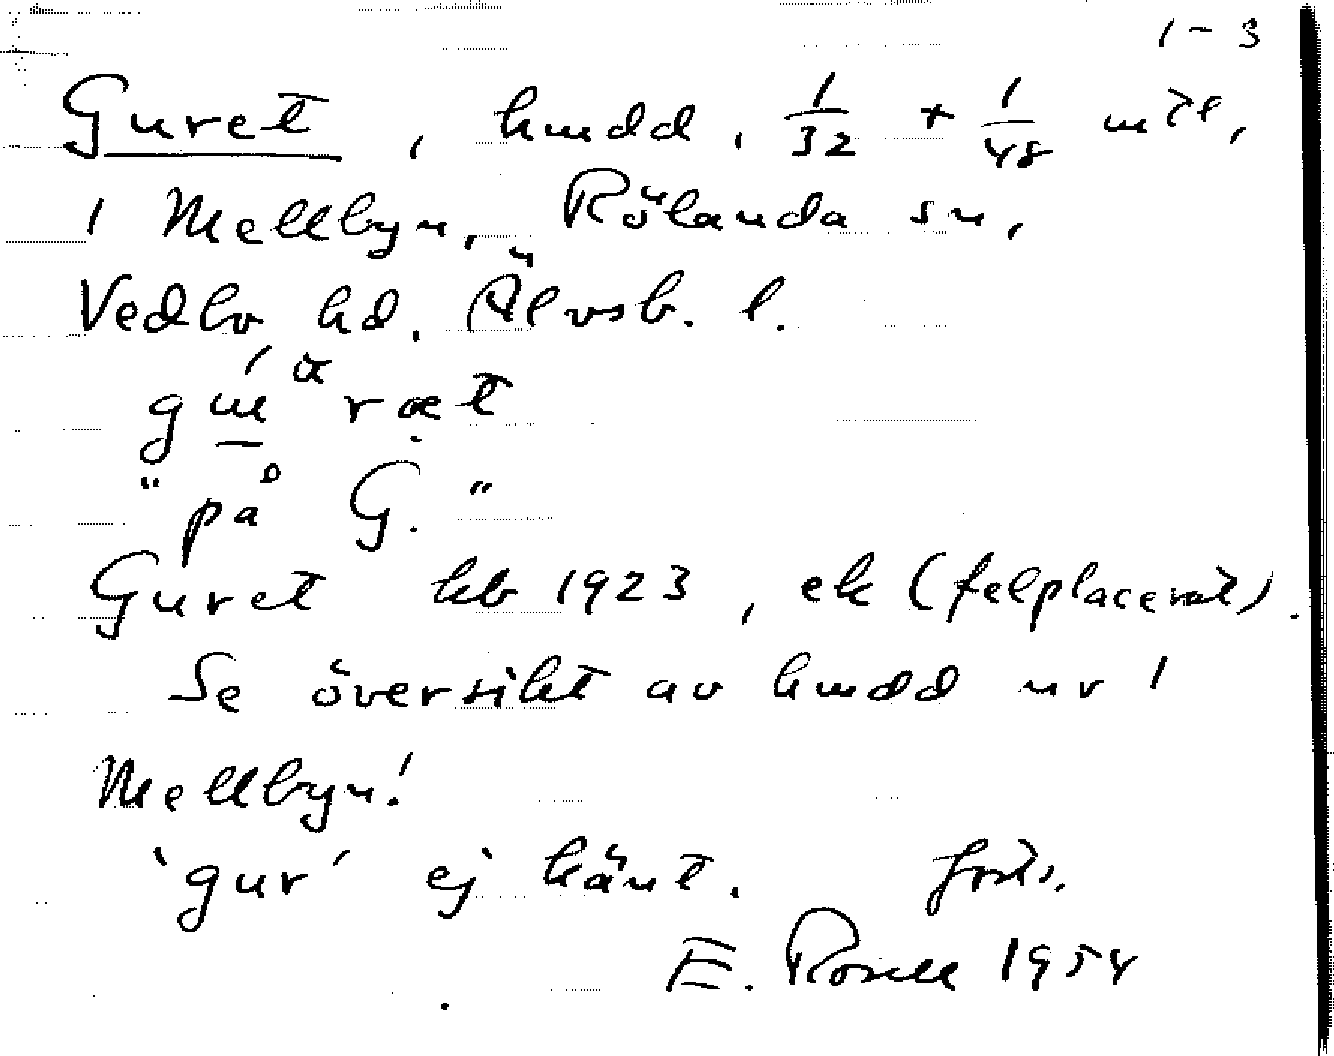 1-3
Guret, hmdd, 1/32 + 1/48 mtl,
i Mellbyn, Rölanda sn,
Vedbo hd. Älvsb. l.
ræt
"på G."
Guret kb 1923, ek (felplacerat).
Se översikt av hmdd nr 1
Mellbyn!
'gur' ej känt. forts.
E. Rosell 1954